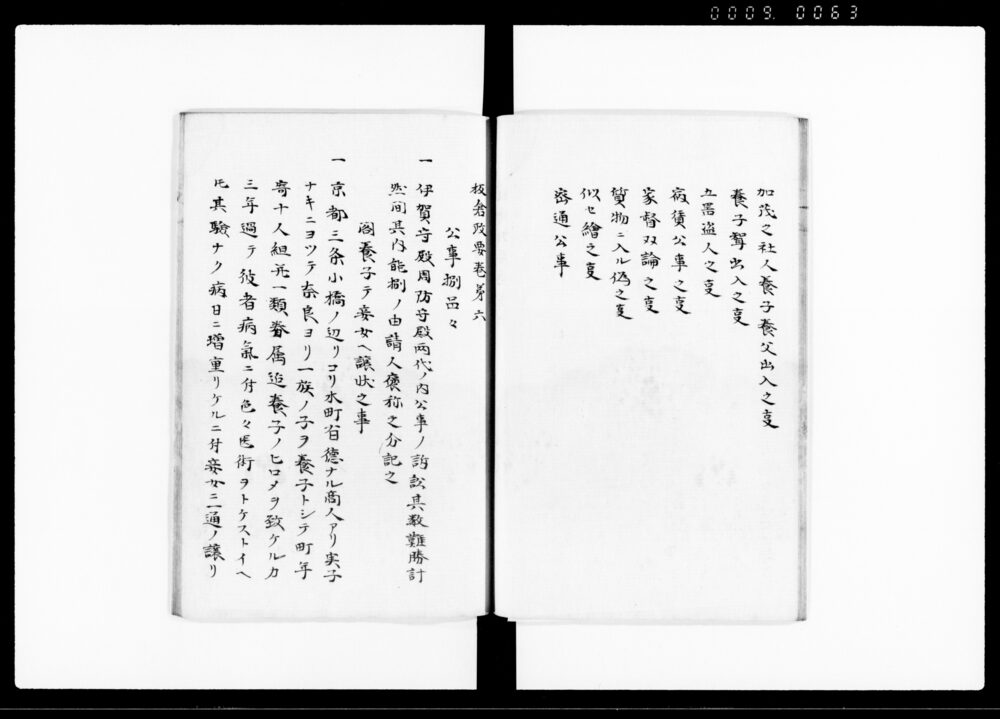 0009. 0063
加茂之社人養子養父出入之叓
養子聟出入之叓
五器盗人之叓
病債公事之叓
家督双論之叓
質物ニ入ル偽之叓
似セ繪之叓
密通公事
板倉政要巻第六
公事捌品々
一 伊賀守殿周防守殿両代ノ内公事ノ訴訟其数難勝計
然間其内能捌ノ由請人褒称之分記之
閣養子テ妾女ヘ譲状之事
一 京都三条小橋ノ辺リコリ水町有徳ナル商人アリ実子
ナキニヨツテ奈良ヨリ一族ノ子ヲ養子トシテ町年
寄十人組并一類眷属迄養子ノヒロメヲ致ケルカ
三年過テ彼者病氣ニ付色々医術ヲトケストイヘ
𪜈其驗ナク病日ニ増重リケルニ付妾女ニ一通ノ譲リ